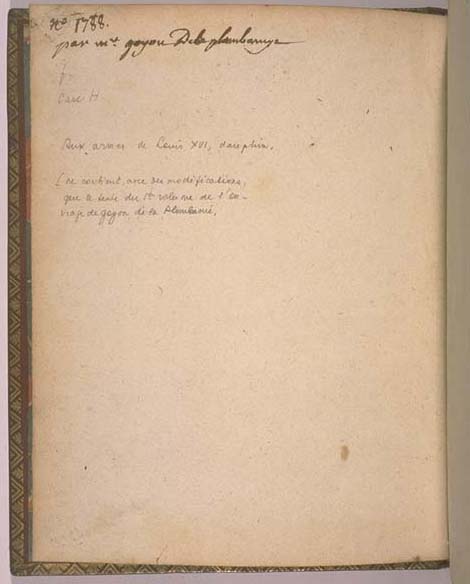 No 1788.
par mr. goyon Dela plombanye
Case H
Aux armes de Louis XVI, dauphin.
[ne contient, avec des modifications,
que le texte du 1er volume de l'ou-
vrage de goyon de la Plombanie.